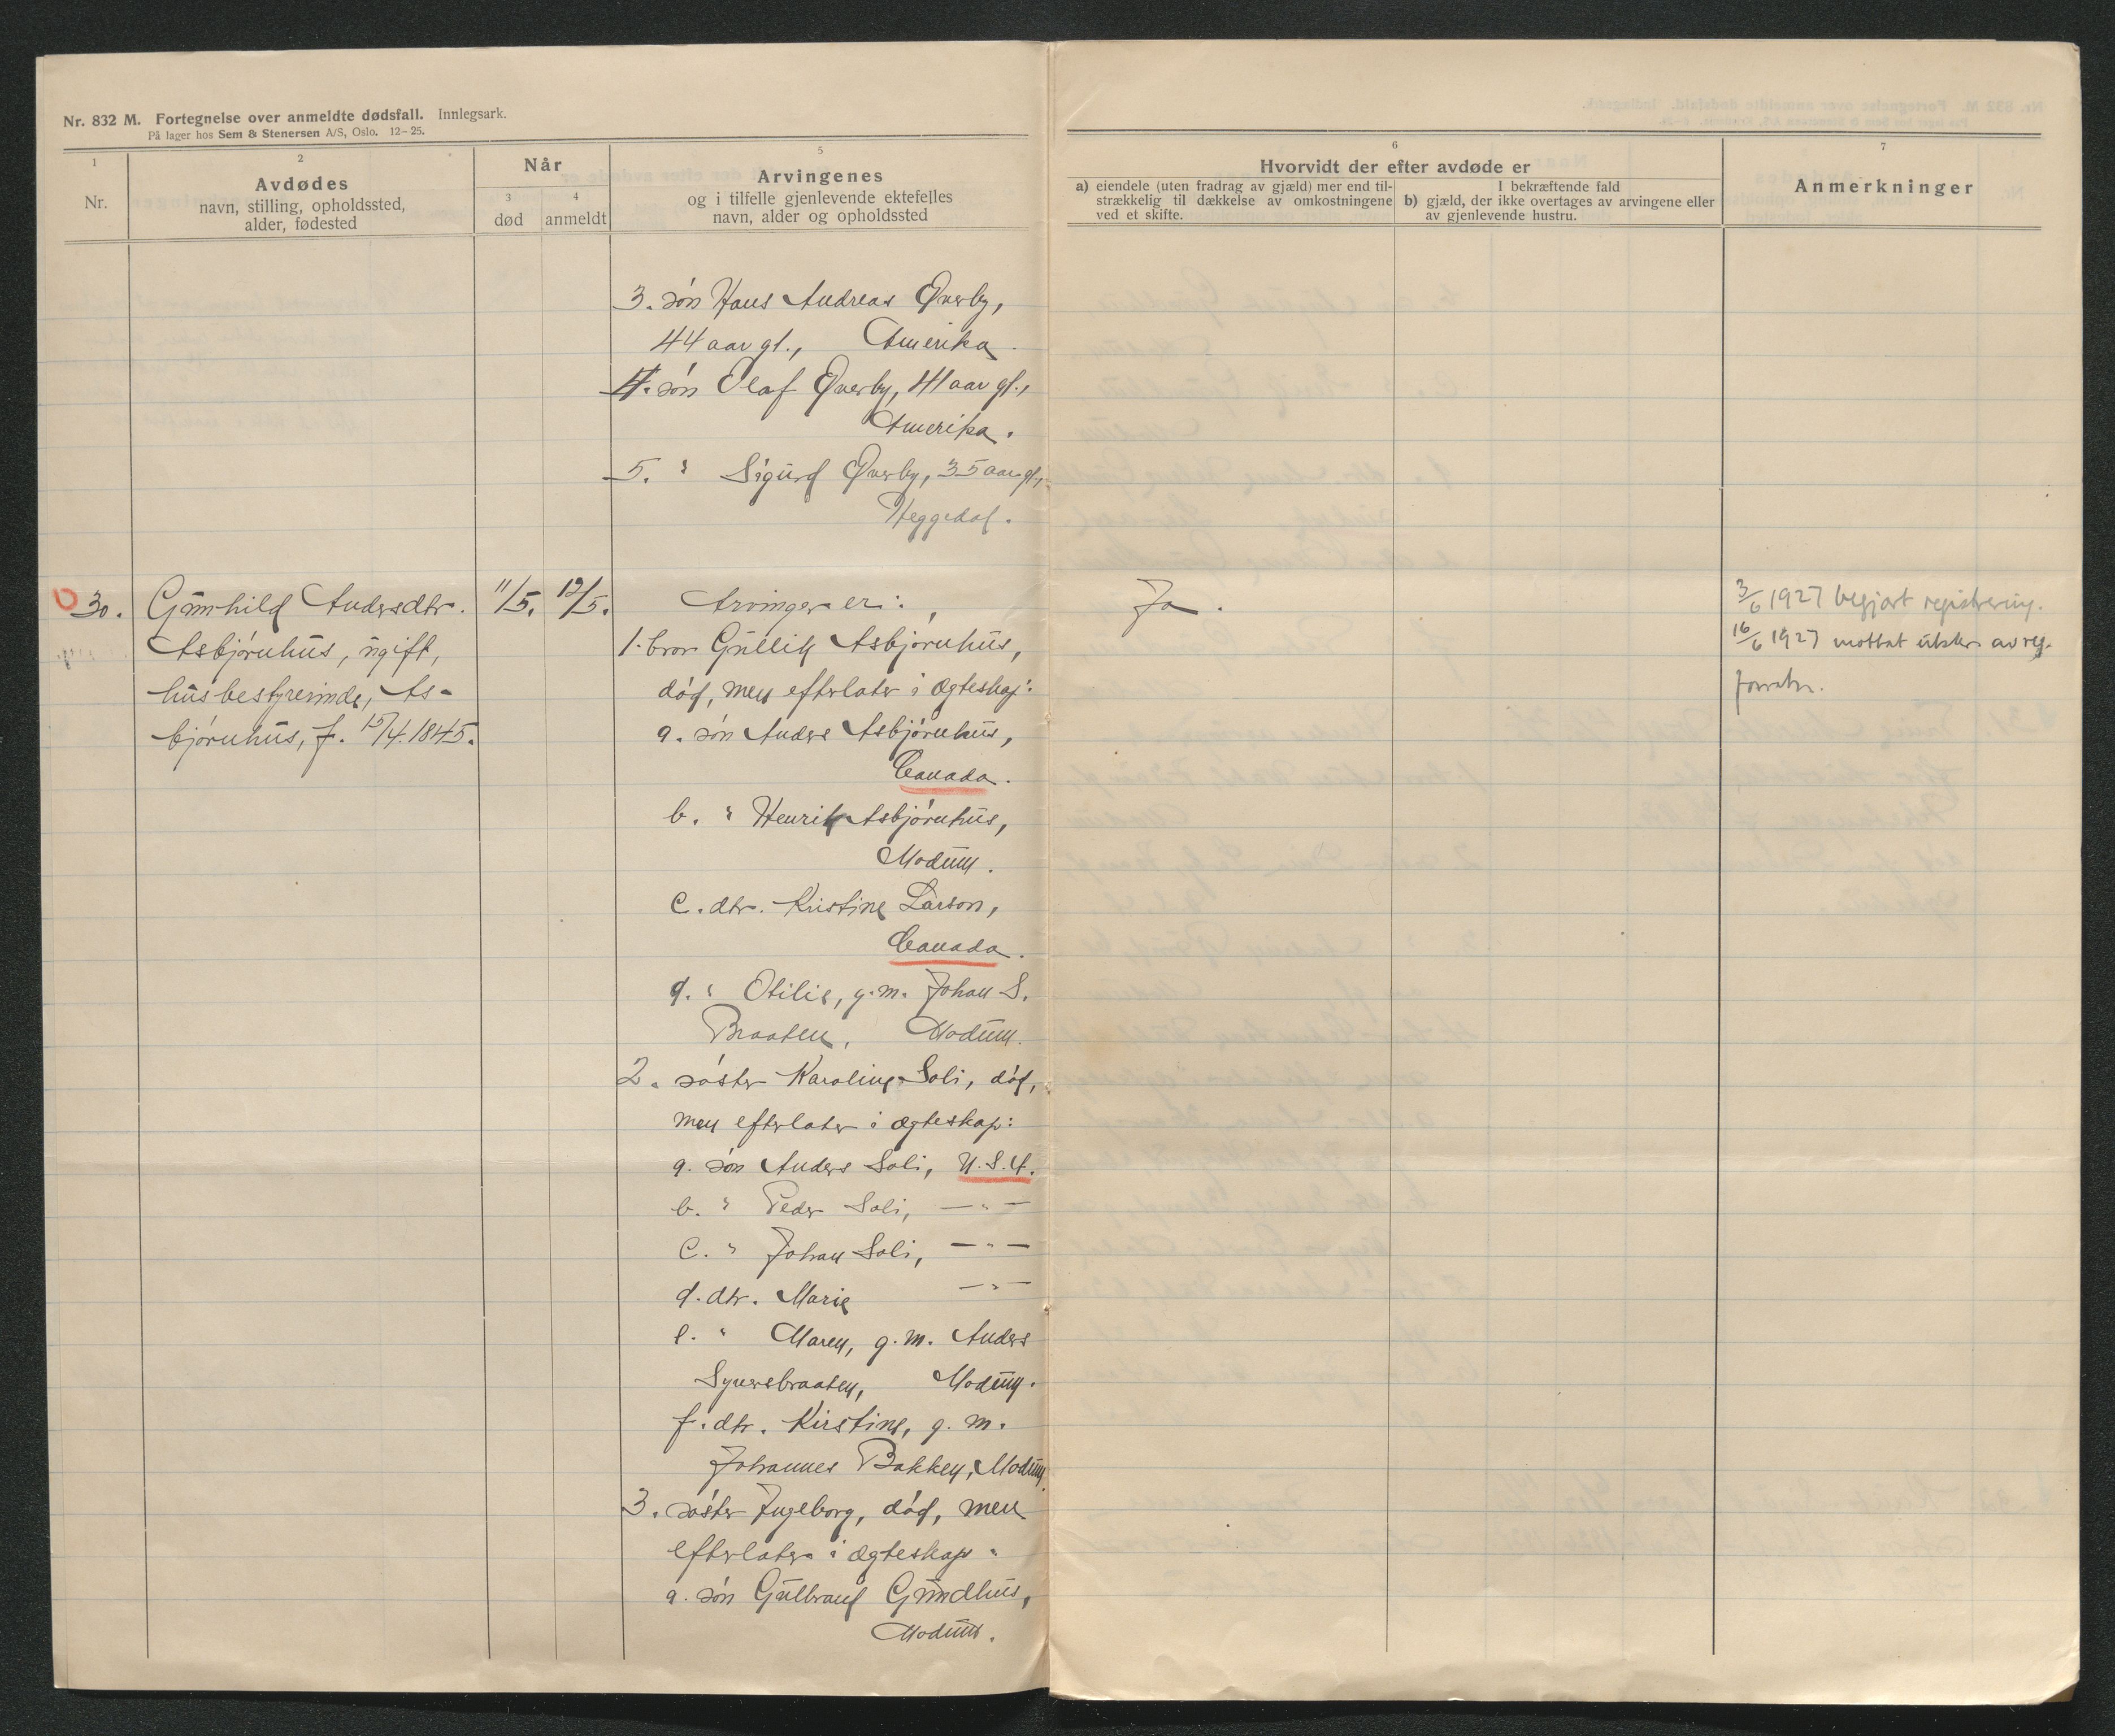 Nr. 832 M. Fortegnelse over anmeldte dødsfall. Innlegsark.
På lager hos Sem & Stenersen A/S, Oslo. 12-25.
1
Nr.
2
Avdødes
navn, stilling, opholdssted,
alder, fødested
Når
3
død
4
anmeldt
5
Arvingenes
og i tilfelle gjenlevende ektefelles
navn, alder og opholdssted
6
Hvorvidt der efter avdøde er
a) eiendele (uten fradrag av gjæld) mer end til-
strækkelig til dækkelse av omkostningene
ved et skifte.
I bekræftende fald
b) gjæld, der ikke overtages av arvingene eller
av gjenlevende hustru.
7
Anmerkninger
3. søn Hans Andreas Øverby,
44 aar gl., Amerika.
4. søn Olaf Øverby, 41 aar gl.,
Amerika.
5. " Sigurd Øverby, 35 aar gl.,
Heggedal.
30. Gunhild Andersdtr. 11/5. 12/5.
Asbjørnhus, ugift,
husbestyrerinde, As-
bjørnhus, f. 15/4.1845.
Arvinger er:
1. bror Gullik Asbjørnhus,
død, men efterlater i ægteskap:
a. søn Anders Asbjørnhus,
Canada.
b. " Henrik Asbjørnhus,
Modum.
c. dtr. Kristine Larson,
Canada.
d. " Otilie, g.m. Johan S.
Braaten, Modum.
2. søster Karoline Soli, død,
men efterlater i ægteskap:
a. søn Anders Soli, U.S.A.
b. " Peder Soli, — " —
c. " Johan Soli, — " —
d. dtr. Marie — " —
e. " Maren, g.m. Anders
Syversbraaten, Modum.
f. dtr. Kirstine, g.m.
Johannes Bakken, Modum.
3. søster Ingeborg, død, men
efterlater i ægteskap:
a. søn Gulbrand Gundhus,
Modum.
Ja.
3/6 1927 begjært registrering.
16/6 1927 mottat utskr. av reg.
forretn.